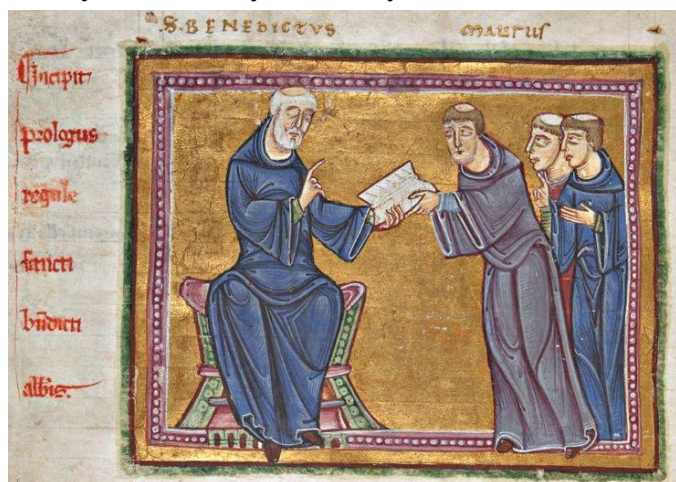 S. BENEDICTVS MAURUS
Incipit
prologus
regule
sancti
bn̄dicti
abb̄is.